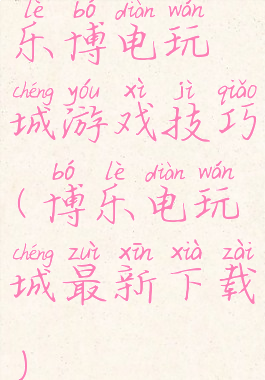 lè bó diàn wán
乐博电玩
chéng yóu xì jì qiǎo
城游戏技巧
bó lè diàn wán
(博乐电玩
chéng zuì xīn xià zài
城最新下载
)